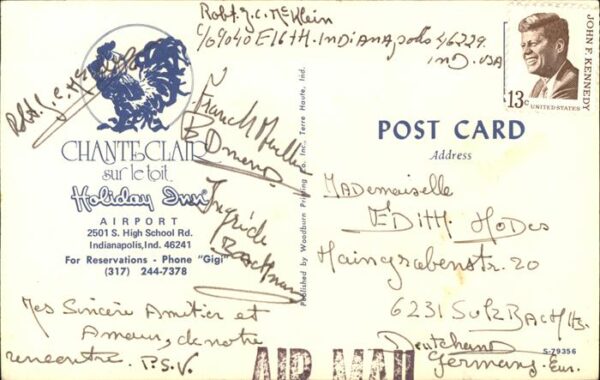 Robt. J.C. McKlein
C/o 9040 E 16TH. INDIANAPOLIS 46229.
IND. USA
JOHN F. KENNEDY
13c UNITED STATES
Franck
CHANTECLAIR
sur le toit
Holiday Inn®
AIRPORT
2501 S. High School Rd.
Indianapolis, Ind. 46241
For Reservations - Phone "Gigi"
(317) 244-7378
Ingride
Mes Sincère Amitier et
Amour, de notre
rencontre. P.S.V.
Published by Woodburn Printing Co. Inc., Terre Haute, Ind.
POST CARD
Address
MADemoiselle
EDITH HODES
Haingrabenstr. 20
6231 SULZBACH/TS.
Deutchand
Germany. Eur.
S-79356
AIR MAIL